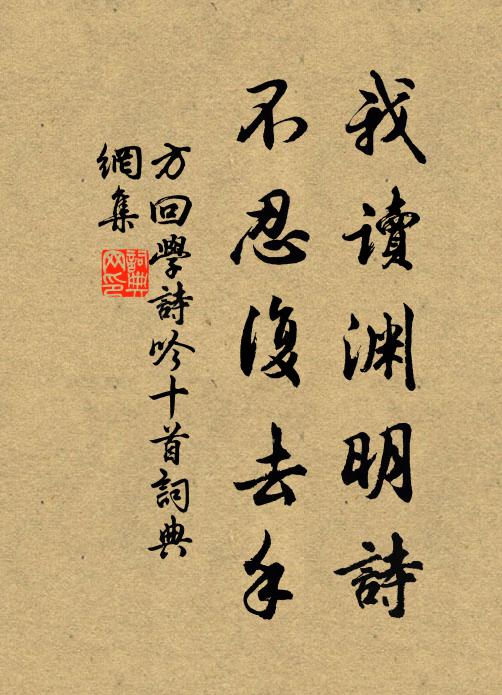 我读渊明诗
不忍復去手
方回學詩吟十首詞典
網集
詞典網印